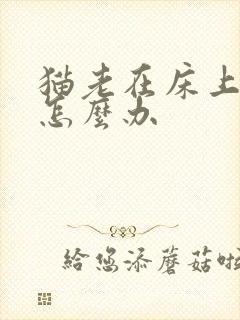 猫老在床上
怎麼办
给您添蘑菇啦